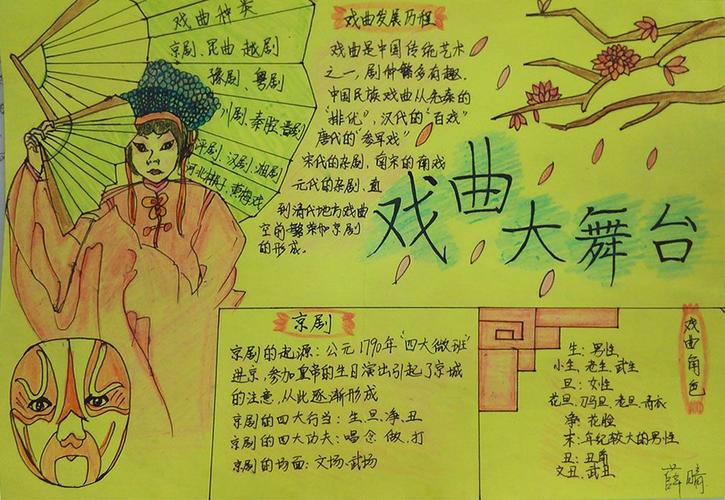 戏曲种类
京剧、昆曲 越剧
豫剧、粤剧
川剧、秦腔 晋剧
评剧、汉剧、湘剧
河北梆子、黄梅戏
戏曲发展历程
戏曲是中国传统艺术
之一,剧种繁多有趣。
中国民族戏曲从先秦的
"俳优"、汉代的"百戏"
唐代的"参军戏"
宋代的杂剧,南宋的南戏
元代的杂剧,直
到清代地方戏曲
空前繁荣和京剧
的形成。
戏曲大舞台
京剧
京剧的起源:公元1790年"四大徽班"
进京,参加皇帝的生日演出引起了京城
的注意,从此逐渐形成
京剧的四大行当:生、旦、净、丑
京剧的四大功夫:唱 念 做、打
京剧的场面:文场、武场
戏曲角色
生:男性
小生、老生、武生
旦:女性
花旦、刀马旦、老旦、青衣
净:花脸
末:年纪较大的男性
丑:丑角
文丑、武丑
薛晴